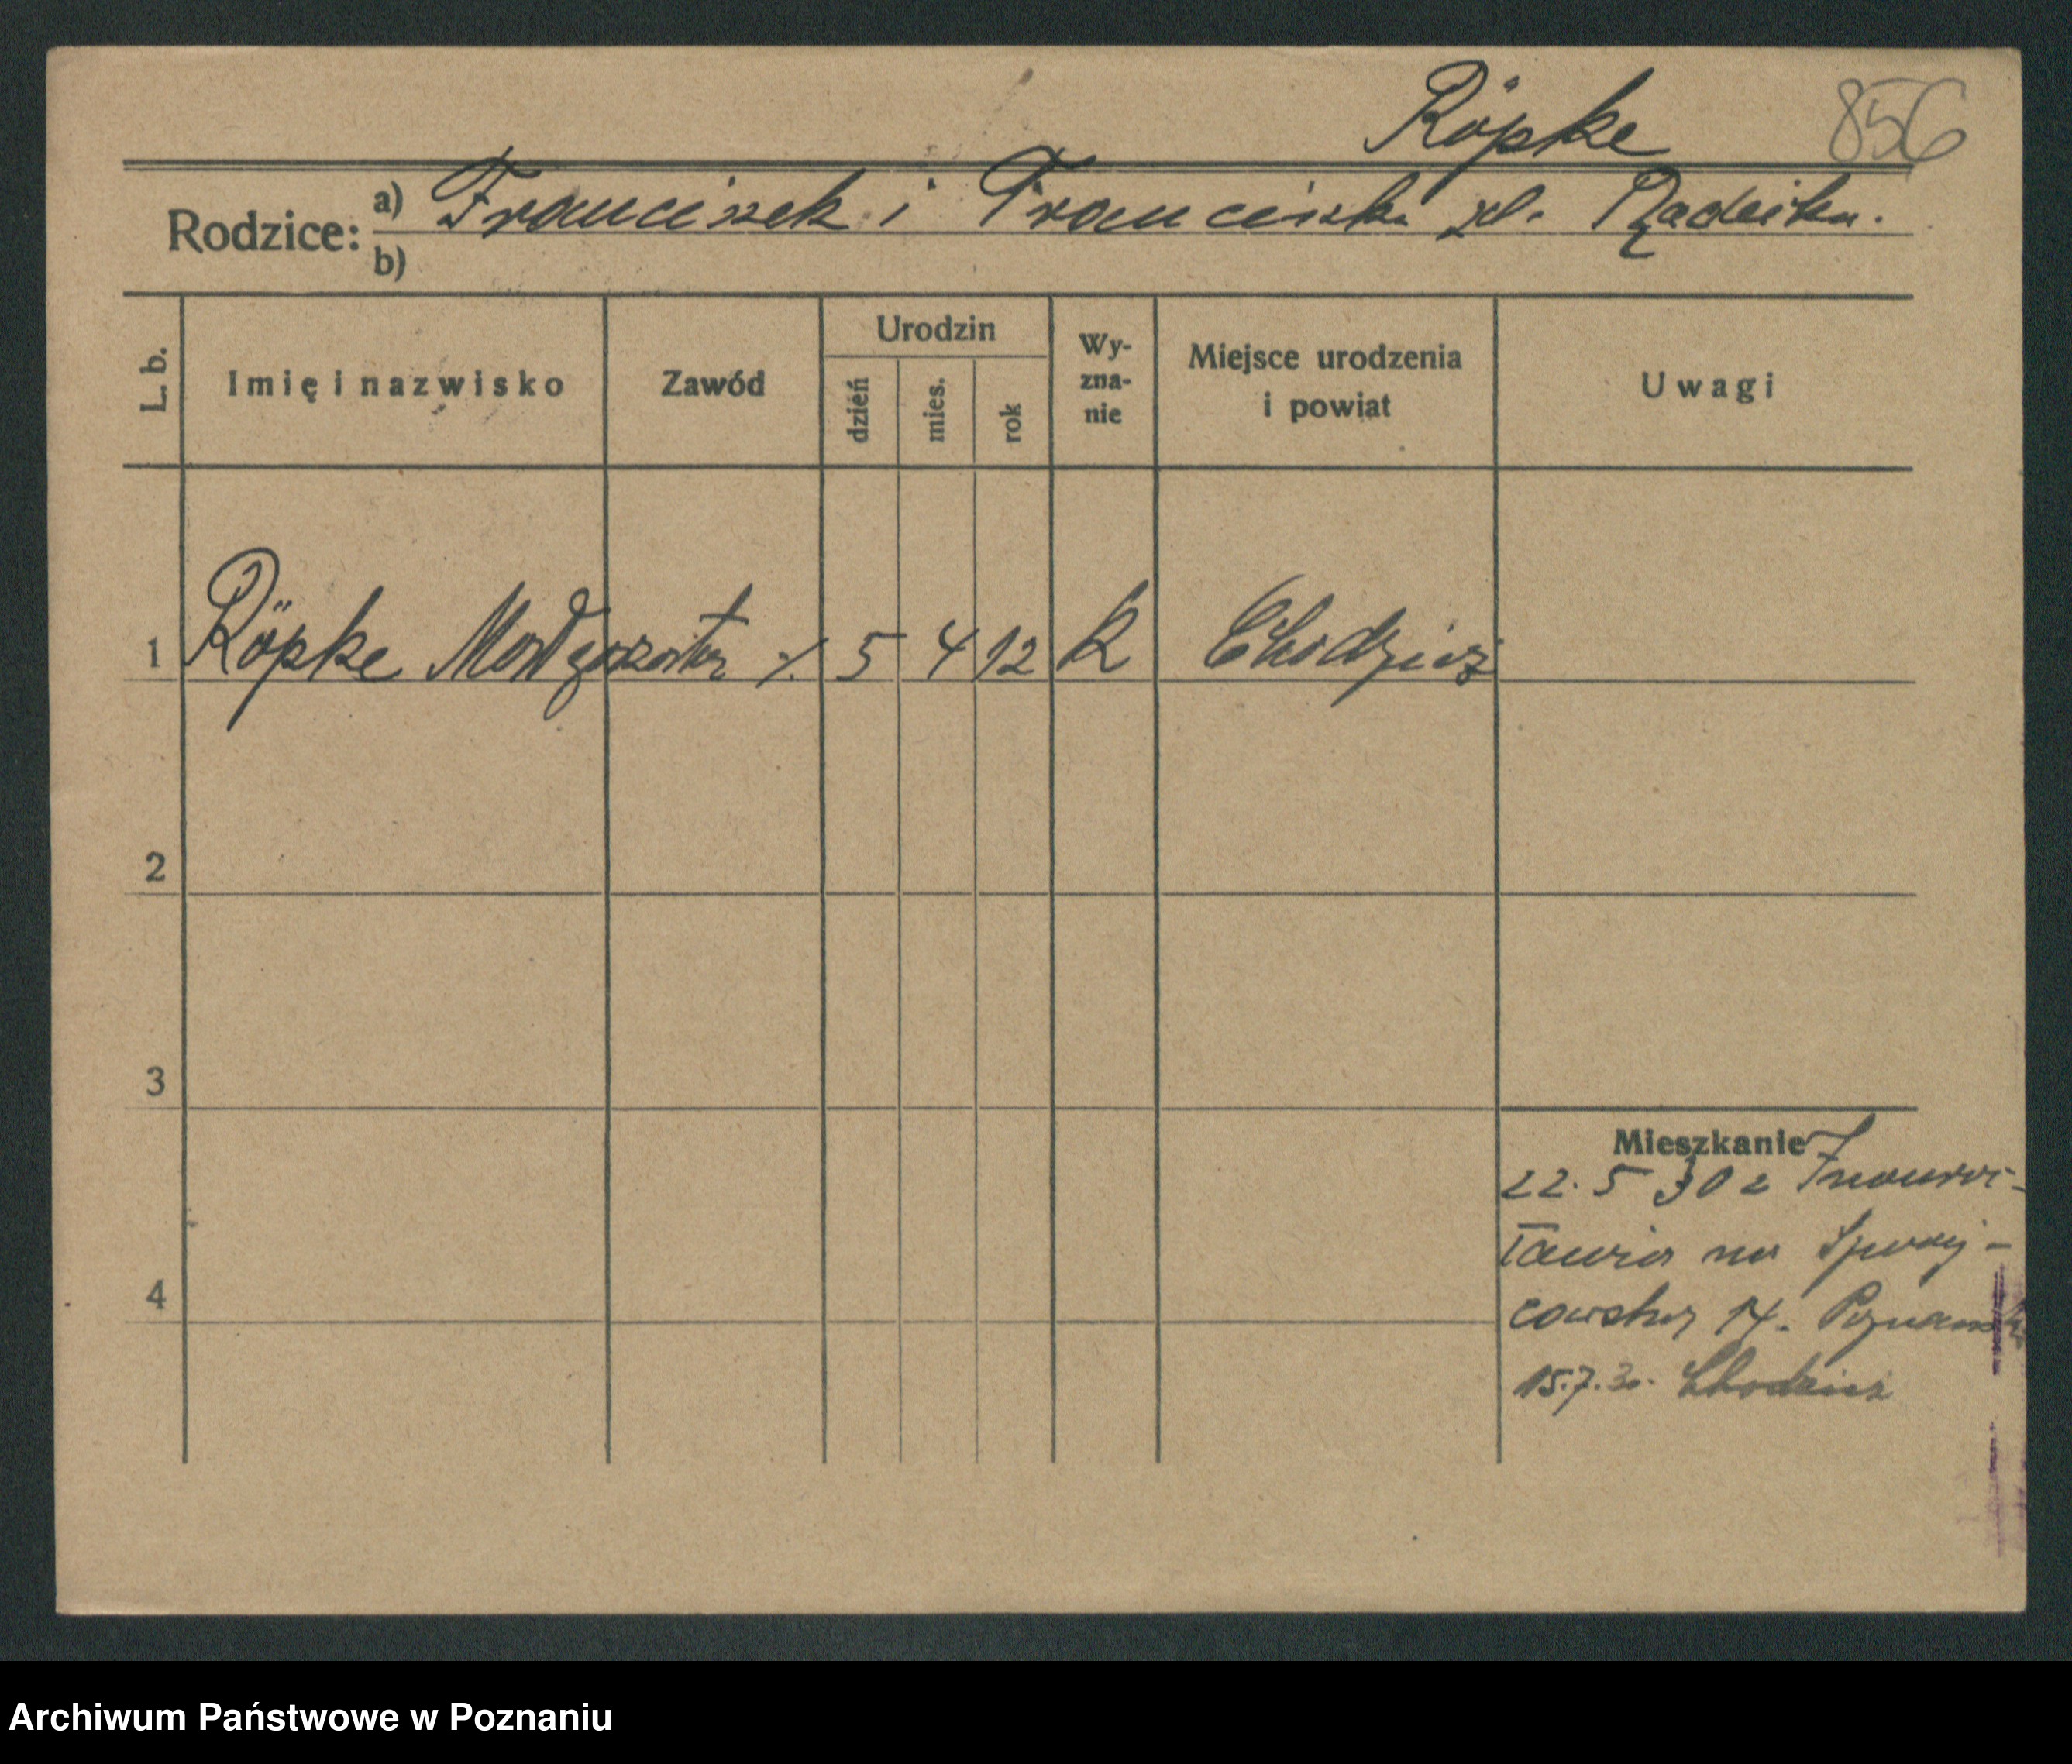 Röpke 856
Rodzice: a) Franciszek i Franciszka zd.
b)
L. b. Imię i nazwisko Zawód Urodzin dzień mies. rok Wy-zna-nie Miejsce urodzenia i powiat Uwagi
1 Röpke Małgorzata ./. 5 4 12 k Chodzież
2
3
Mieszkanie
22.5 30 z Inowro-
cławia na
14. Poznańska
4
15.7.30. Chodzież
Archiwum Państwowe w Poznaniu